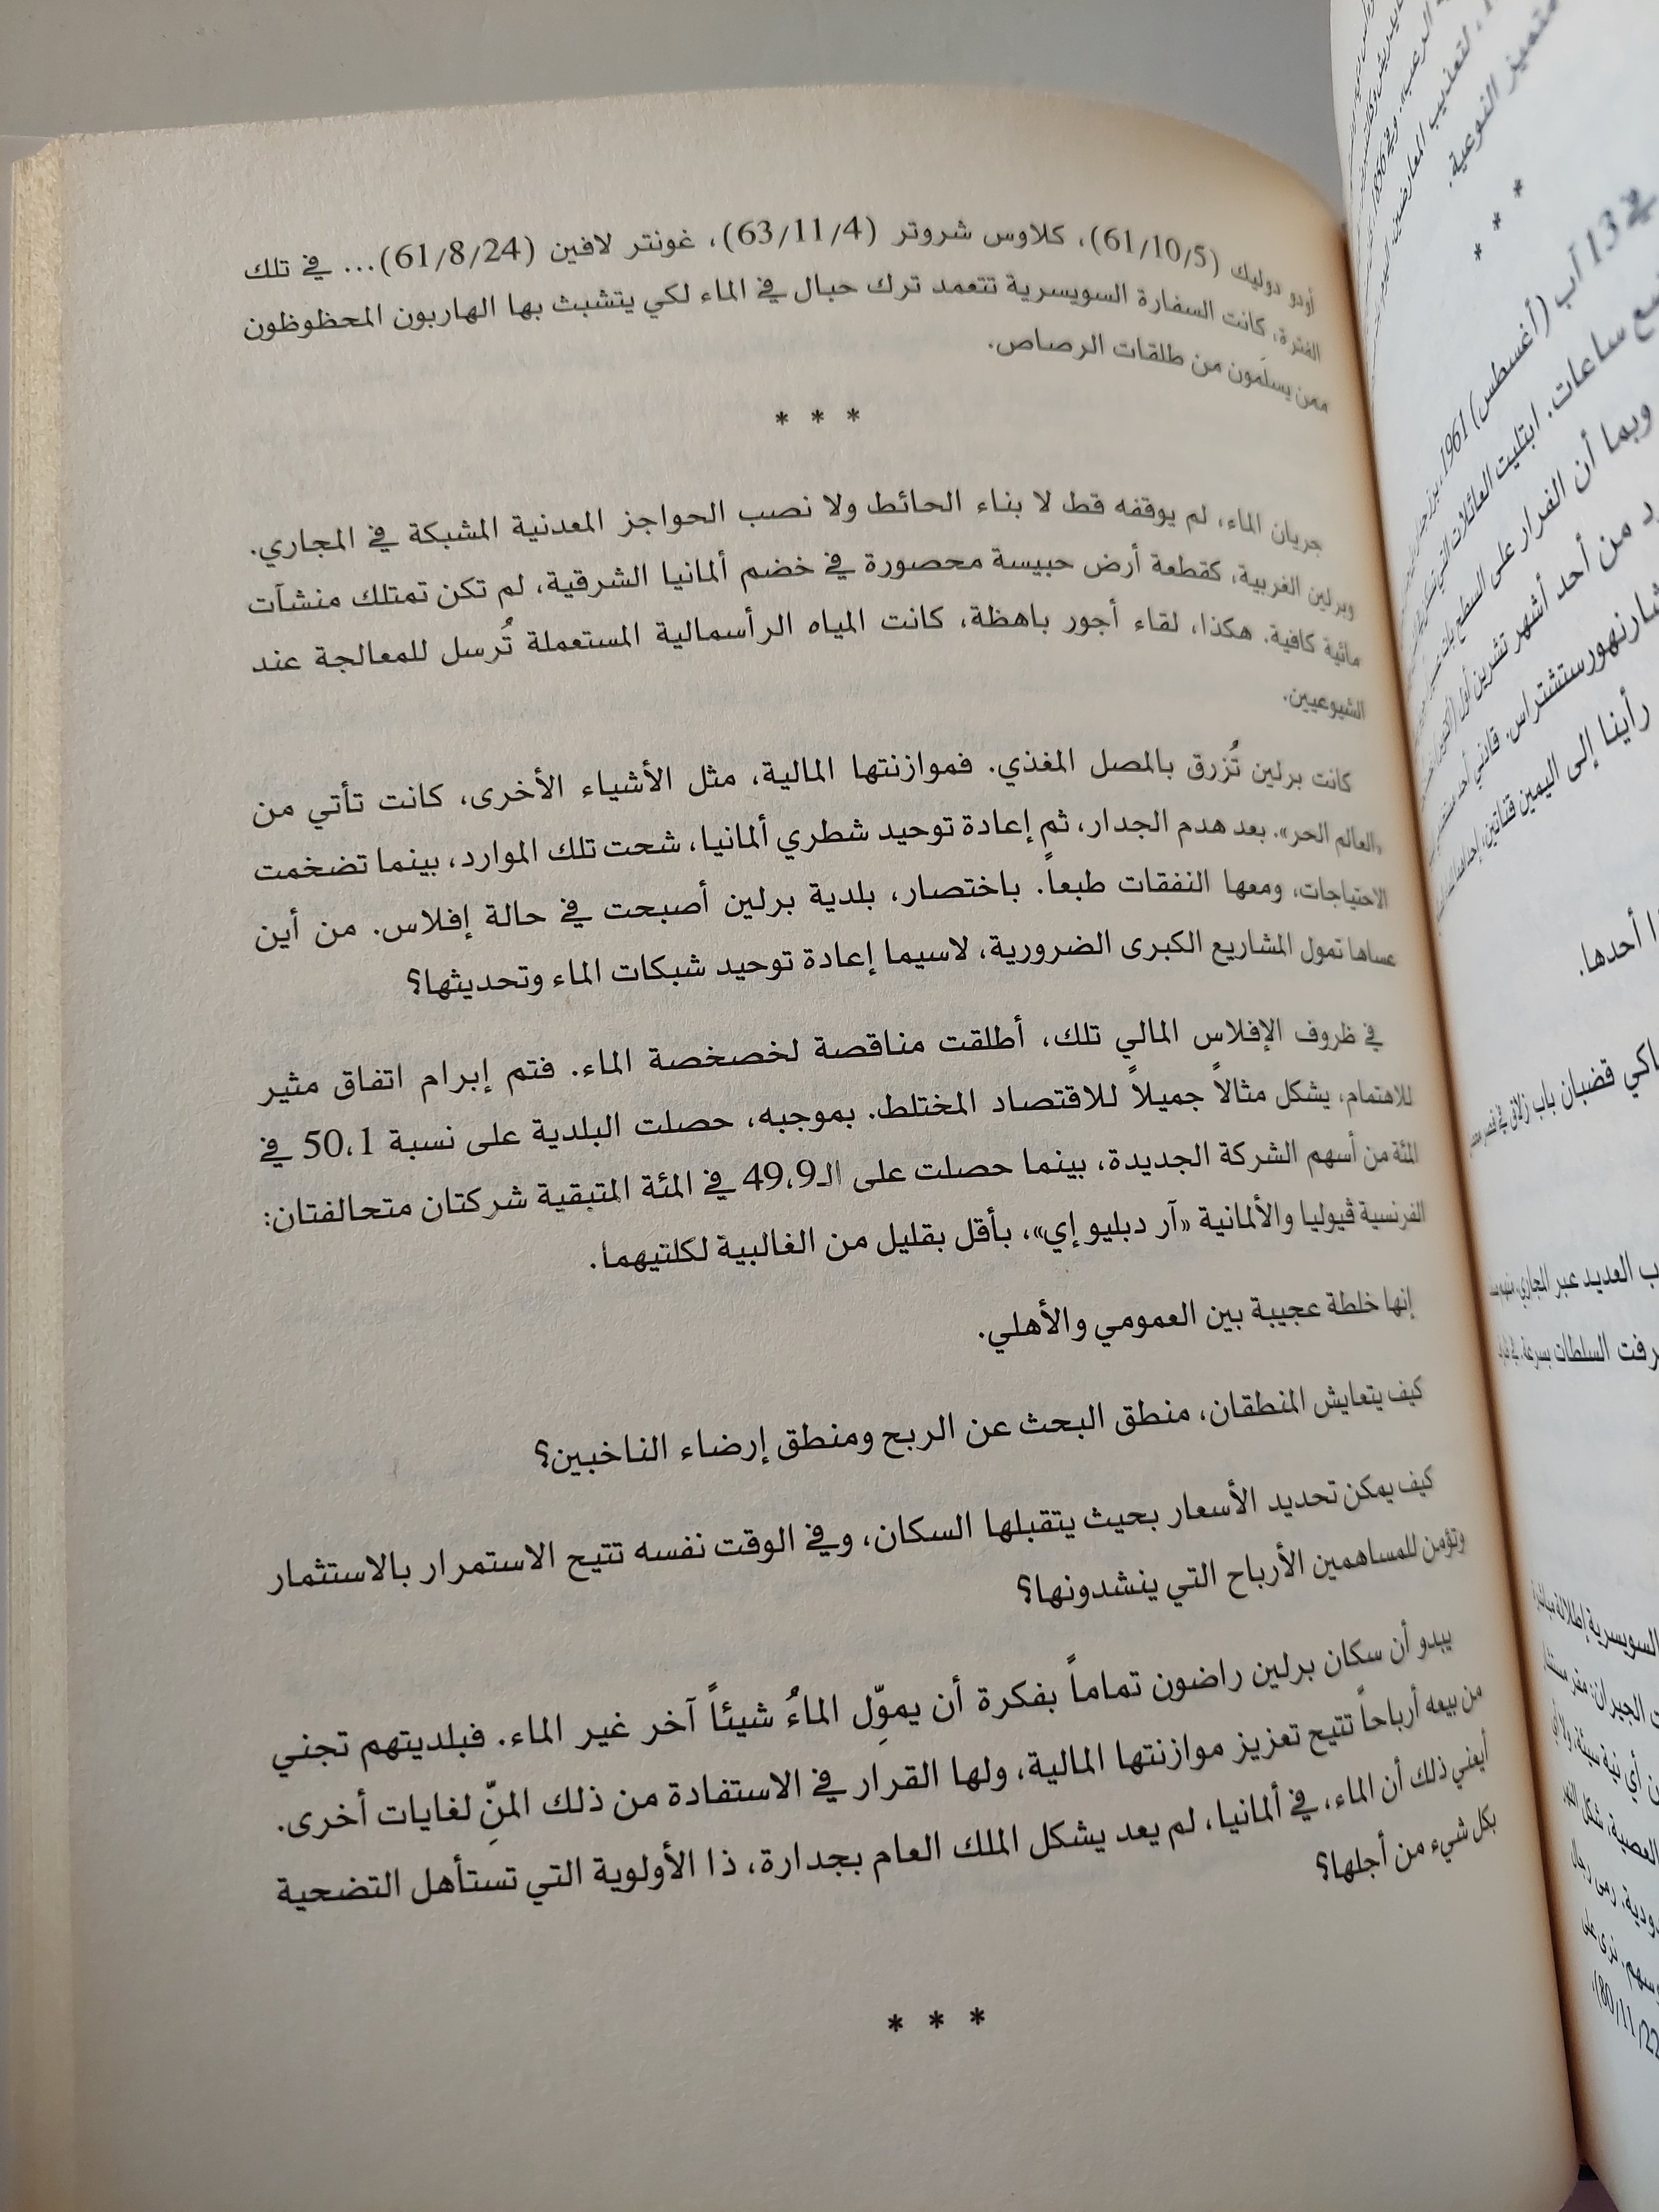 أودو دوليك (61/10/5)، كلاوس شروتر (63/11/4)، غونتر لافين (61/8/24)... في تلك
الفترة، كانت السفارة السويسرية تتعمد ترك حبال في الماء لكي يتشبث بها الهاربون المحظوظون
ممن يسلَمون من طلقات الرصاص.
* * *
جريان الماء، لم يوقفه قط لا بناء الحائط ولا نصب الحواجز المعدنية المشبكة في المجاري.
وبرلين الغربية، كقطعة أرض حبيسة محصورة في خضم ألمانيا الشرقية، لم تكن تمتلك منشآت
مائية كافية. هكذا، لقاء أجور باهظة، كانت المياه الرأسمالية المستعملة تُرسل للمعالجة عند
الشيوعيين.
كانت برلين تُزرق بالمصل المغذي. فموازنتها المالية، مثل الأشياء الأخرى، كانت تأتي من
«العالم الحر». بعد هدم الجدار، ثم إعادة توحيد شطري ألمانيا، شحت تلك الموارد، بينما تضخمت
الاحتياجات، ومعها النفقات طبعاً. باختصار، بلدية برلين أصبحت في حالة إفلاس. من أين
عساها تمول المشاريع الكبرى الضرورية، لاسيما إعادة توحيد شبكات الماء وتحديثها؟
في ظروف الإفلاس المالي تلك، أطلقت مناقصة لخصخصة الماء. فتم إبرام اتفاق مثير
للاهتمام، يشكل مثالاً جميلاً للاقتصاد المختلط. بموجبه، حصلت البلدية على نسبة 50،1 في
المئة من أسهم الشركة الجديدة، بينما حصلت على الـ49،9 في المئة المتبقية شركتان متحالفتان:
الفرنسية ڤيوليا والألمانية «آر دبليو إي»، بأقل بقليل من الغالبية لكلتيهما.
إنها خلطة عجيبة بين العمومي والأهلي.
كيف يتعايش المنطقان، منطق البحث عن الربح ومنطق إرضاء الناخبين؟
كيف يمكن تحديد الأسعار بحيث يتقبلها السكان، وفي الوقت نفسه تتيح الاستمرار بالاستثمار
وتؤمن للمساهمين الأرباح التي ينشدونها؟
يبدو أن سكان برلين راضون تماماً بفكرة أن يموِّل الماءُ شيئاً آخر غير الماء. فبلديتهم تجني
من بيعه أرباحاً تتيح تعزيز موازنتها المالية، ولها القرار في الاستفادة من ذلك المنِّ لغايات أخرى.
أيعني ذلك أن الماء، في ألمانيا، لم يعد يشكل الملك العام بجدارة، ذا الأولوية التي تستأهل التضحية
بكل شيء من أجلها؟
* * *
لتعذيب المعارضين
متميز النوعية.
* * *
في 13 آب (أغسطس) 1961
ساعات. ابتليت العائلات التي
وبما أن الفرار على السطح
من أحد أشهر تشرين
رأينا إلى اليمين قناتين،
أحدها.
قضبان باب
العديد عبر المجاري،
السلطات بسرعة،
السويسرية إطلالة
الجيران:
أي نية سيئة،
80/11/22